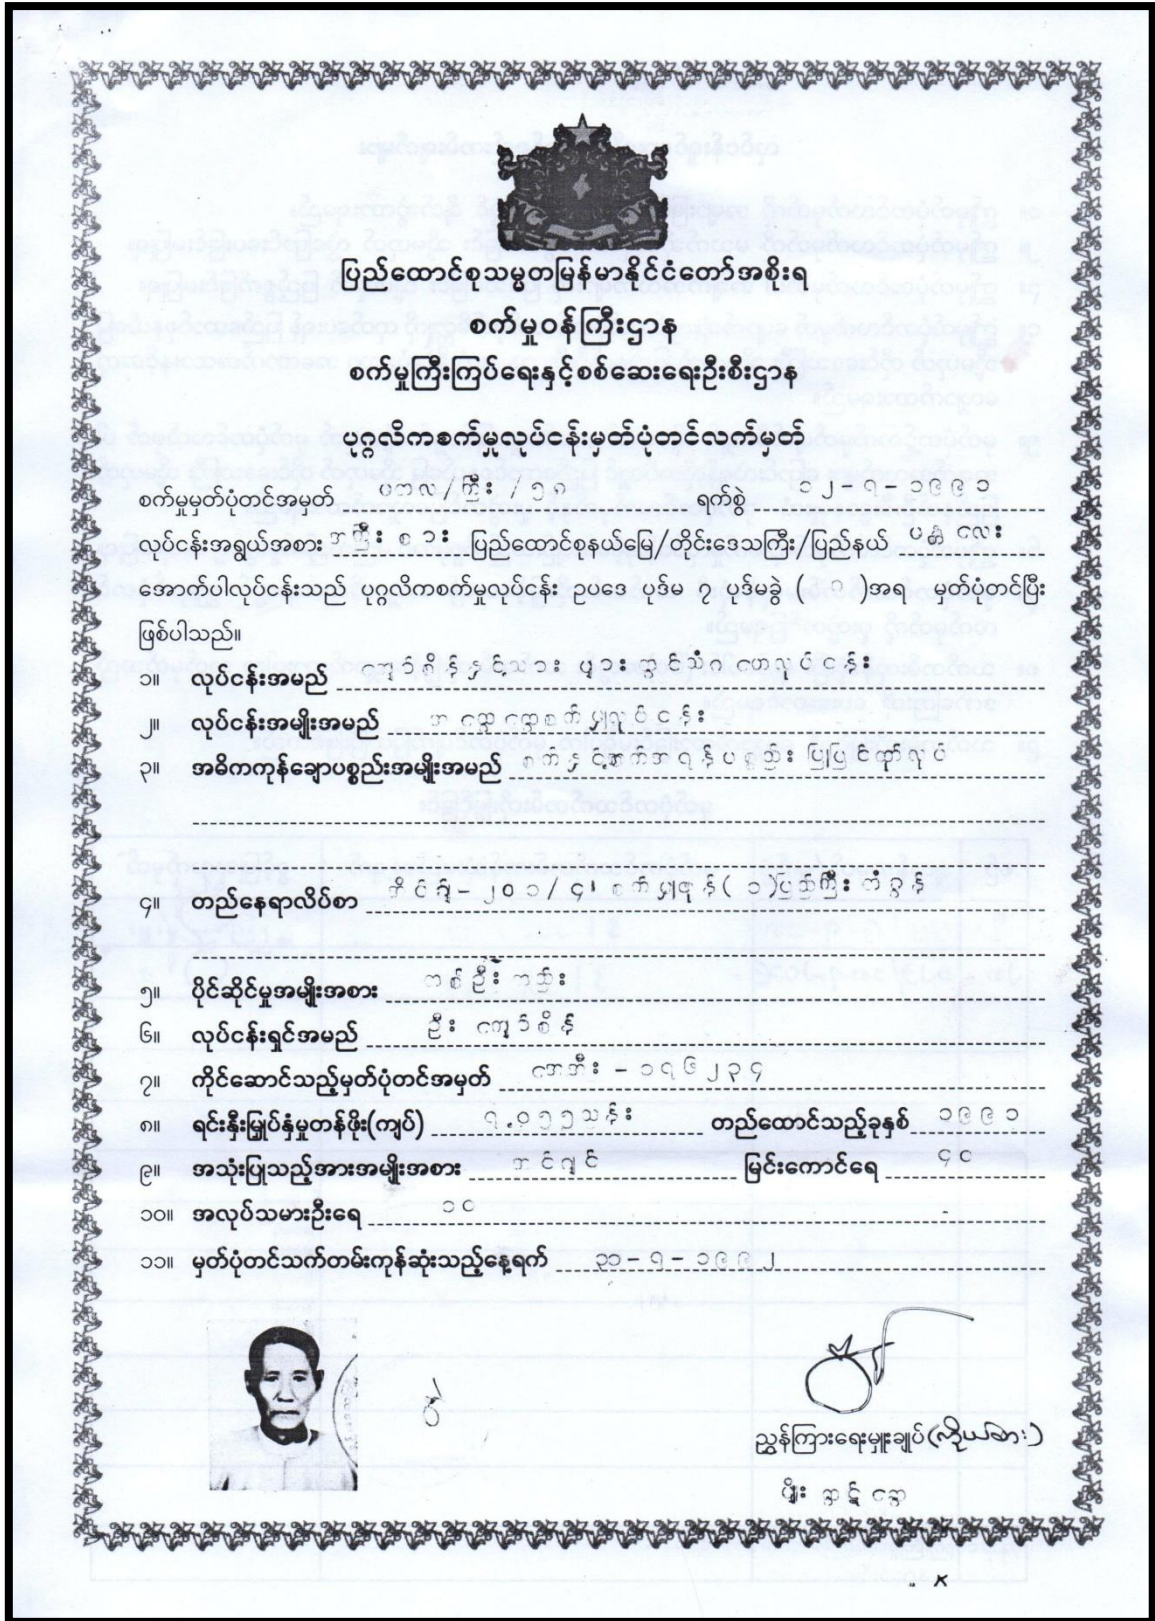 ပြည်ထောင်စုသမ္မတမြန်မာနိုင်ငံတော်အစိုးရ
စက်မှုဝန်ကြီးဌာန
စက်မှုကြီးကြပ်ရေးနှင့်စစ်ဆေးရေးဦးစီးဌာန
ပုဂ္ဂလိကစက်မှုလုပ်ငန်းမှတ်ပုံတင်လက်မှတ်
စက်မှုမှတ်ပုံတင်အမှတ် မတလ/ကြီး / ၅၈ ရက်စွဲ ၁၂-၇-၁၉၉၁
လုပ်ငန်းအရွယ်အစား အကြီး စား ပြည်ထောင်စုနယ်မြေ/တိုင်းဒေသကြီး/ပြည်နယ် မန္တ လေး
အောက်ပါလုပ်ငန်းသည် ပုဂ္ဂလိကစက်မှုလုပ်ငန်း ဥပဒေ ပုဒ်မ ၇ ပုဒ်မခွဲ ( က )အရ မှတ်ပုံတင်ပြီး
ဖြစ်ပါသည်။
၁။ လုပ်ငန်းအမည် ကျော်စိန်နှင့်သား များ လုပ်ငန်း
၂။ လုပ်ငန်းအမျိုးအမည် အ ထွေ ထွေစက်မှုလုပ်ငန်း
၃။ အဓိကကုန်ချောပစ္စည်းအမျိုးအမည် စက်နှင့်စက်အရန်ပစ္စည်း ပြုပြင်ထုတ်လုပ်
၄။ တည်နေရာလိပ်စာ စက်မှုဇုန်( ၁ )ပြည်ကြီး တံခွန်
၅။ ပိုင်ဆိုင်မှုအမျိုးအစား တစ်ဦး တည်း
၆။ လုပ်ငန်းရှင်အမည် ဦး ကျော်စိန်
၇။ ကိုင်ဆောင်သည့်မှတ်ပုံတင်အမှတ် အေဘီး - ၁၇၆၂၃၄
၈။ ရင်းနှီးမြှုပ်နှံမှုတန်ဖိုး(ကျပ်) ၇.၀၅၅သန်း တည်ထောင်သည့်ခုနှစ် ၁၉၉၁
၉။ အသုံးပြုသည့်အားအမျိုးအစား အင်ဂျင် မြင်းကောင်ရေ ၄၀
၁၀။ အလုပ်သမားဦးရေ ၁၀
၁၁။ မှတ်ပုံတင်သက်တမ်းကုန်ဆုံးသည့်နေ့ရက် ၃၁- ၇ - ၁၉၉၂
ညွှန်ကြားရေးမှူးချုပ်(ကိုယ်စား)